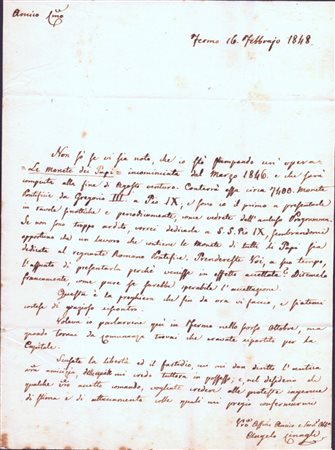 Amico C.mo
Fermo 16. Febbrajo 1848.
Non so se vi sia noto, che io stò stampando un'opera
"Le Monete dei Papi" incominciata dal Marzo 1846. e che sarà
compiuta alla fine di Agosto venturo. Conterrà essa circa 7400. Monete
Pontificie da Gregorio III. a Pio IX, e sarò io il primo a presentarle
in tavole sinottiche e periodicamente, come vedrete dall'annesso Programma.
Se non fosse troppo ardito, vorrei dedicarla a S.S. Pio IX, sembrandomi
opportuno che un lavoro che contiene le Monete di tutti i Papi sia
dedicato al regnante Romano Pontefice. Prendereste Voi, a suo tempo,
l'assunto di presentarla perchè venisse in effetto accettata? Ditemelo
francamente, come pure se sarebbe sperabile l'accettazione.
Questa è la preghiera che fin da ora vi faccio, e starommi
cortese di grazioso riscontro.
Voleva io parlarvene qui in Fermo nello scorso Ottobre, ma
quando tornai da Camerino trovai che eravate ripartito per la
Capitale.
Scusate la libertà ed il fastidio, ma mi dan diritto l'antica
nra amicizia, della quale mi credo tuttora in possesso, e nel desiderio di
qualche vro ambito comando, vogliate credere alle proteste ingenue
di stima e di attaccamento colle quali mi pregio confermarmi
Vro Affmo Amico e Servo
Angelo Cinagli